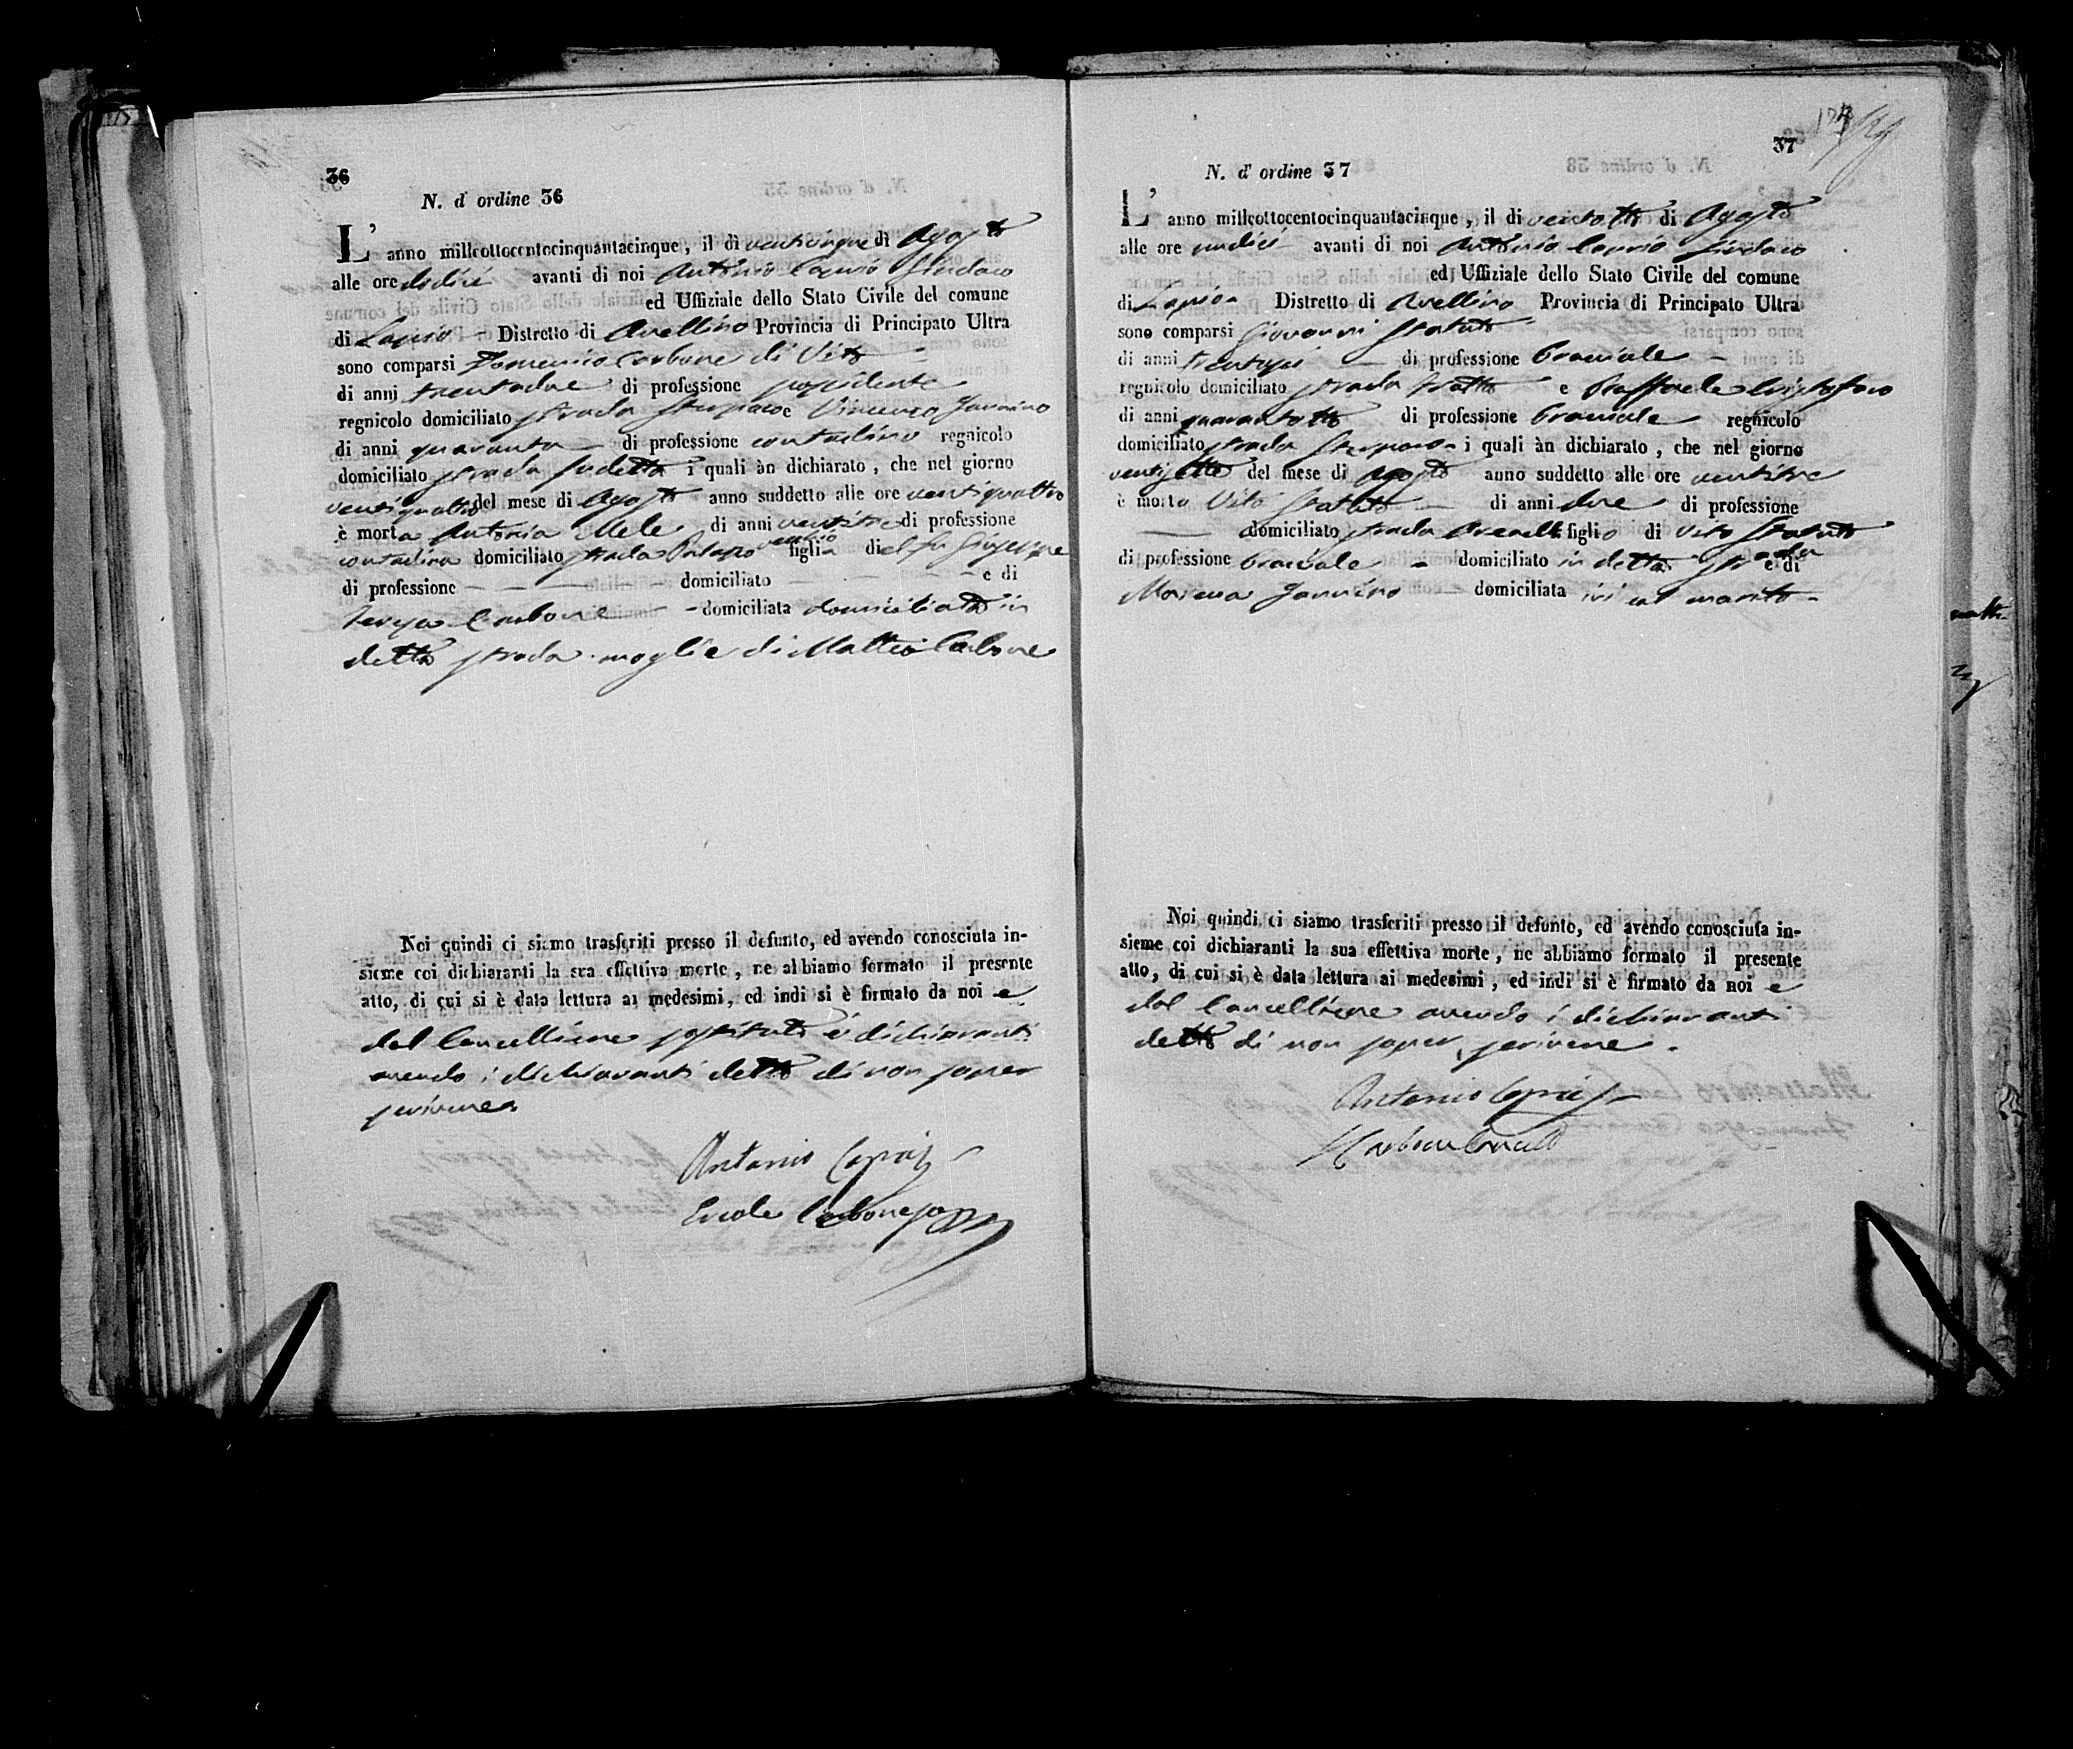 36
N. d' ordine 36
L' anno millcottocentocinquantacinque, il dì venticinque di Agosto
alle ore dodici avanti di noi Antonio Caprio Sindaco
ed Uffiziale dello Stato Civile del comune
di Lapio Distretto di Avellino Provincia di Principato Ultra
sono comparsi Domenico Carbone di Vito
di anni trentadue di professione possidente
regnicolo domiciliato strada e Vincenzo Jannino
di anni quaranta di professione contadino regnicolo
domiciliato strada sudetta i quali àn dichiarato, che nel giorno
ventiquattro del mese di Agosto anno suddetto alle ore ventiquattro
è morta Antonia Mele di anni ventitre di professione
contadina domiciliato strada Palazzo vecchio figlia del fu Giuseppe
di professione domiciliato e di
Teresa Carbone domiciliata domiciliata in
detta strada moglie di Matteo Carbone
Noi quindi ci siamo trasferiti presso il defunto, ed avendo conosciuta in-
sieme coi dichiaranti la sua effettiva morte, ne abbiamo formato il presente
atto, di cui si è data lettura ai medesimi, ed indi si è firmato da noi e
dal Cancelliere sostituto i dichiaranti
avendo i dichiaranti detto di non saper
scrivere
Antonio Caprio
Ercole Carbone
37
N. d' ordine 37
L' anno millcottocentocinquantacinque, il di ventotto di Agosto
alle ore undici avanti di noi Antonio Caprio Sindaco
ed Uffiziale dello Stato Civile del comune
di Lapio Distretto di Avellino Provincia di Principato Ultra
sono comparsi Giovanni Statuto
di anni trentasei di professione Bracciale
regnicolo domiciliato strada Tratto e Raffaele Cristofaro
di anni quarantotto di professione Bracciale regnicolo
domiciliato strada i quali àn dichiarato, che nel giorno
ventisette del mese di Agosto anno suddetto alle ore ventitre
è morto Vito Statuto di anni due di professione
domiciliato strada figlio di Vito Statuto
di professione Bracciale domiciliato in detta strada e di
Jannino domiciliata ivi col marito
Noi quindi ci siamo trasferiti presso il defunto, ed avendo conosciuta in-
sieme coi dichiaranti la sua effettiva morte, ne abbiamo formato il presente
atto, di cui si è data lettura ai medesimi, ed indi si è firmato da noi e
dal Cancelliere avendo i dichiaranti
detto di non saper scrivere.
Antonio Caprio